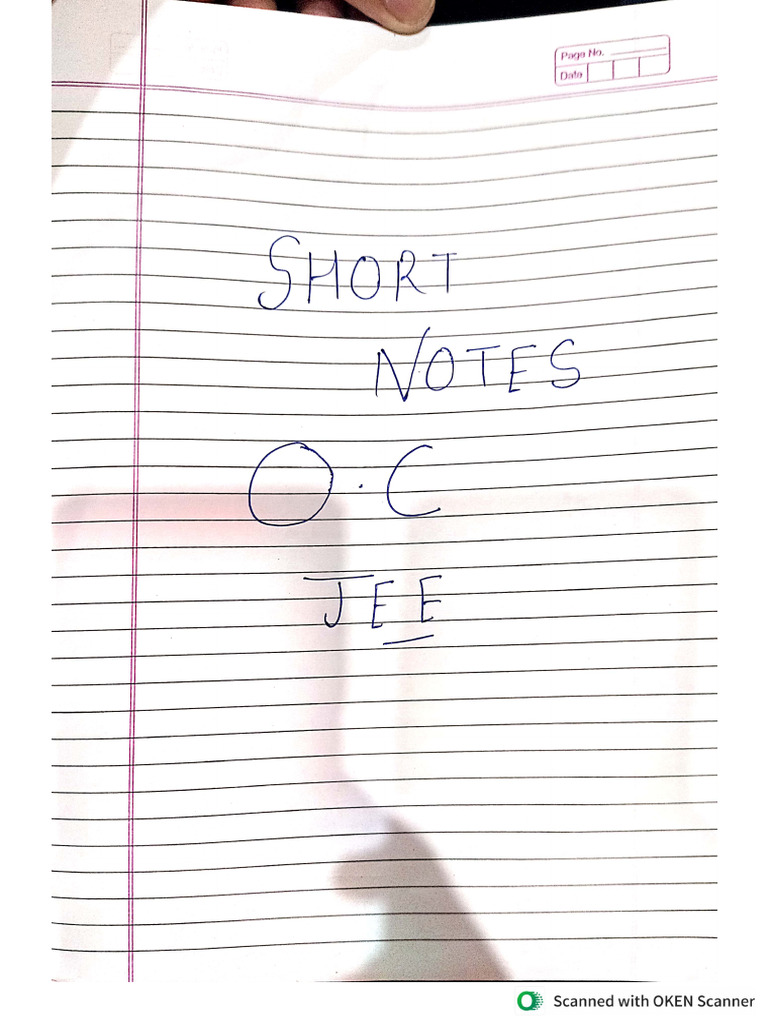 Page No.
Date
SHORT
NOTES
O.C
JEE
Scanned with OKEN Scanner